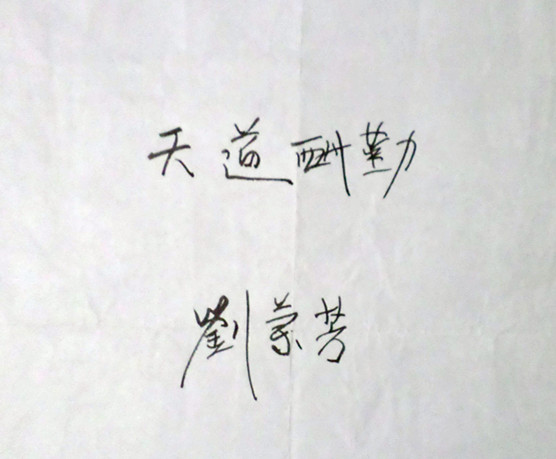 天道酬勤
劉荣芳